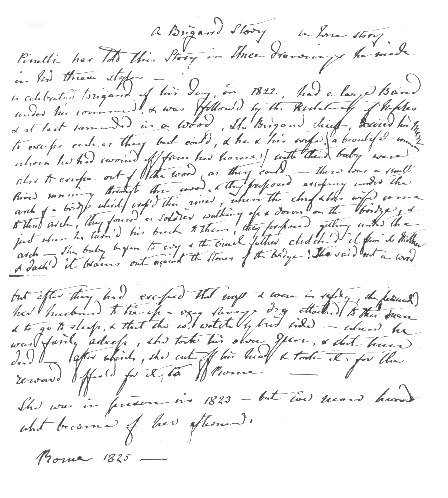 A Brigand Story in three story
Pinelli has told this Story in three drawings he made
in his three steps —
a celebrated brigand of his day, in 1822, had a large Band
under his command, & was followed by the of Naples
& at last surrounded in a wood. The Brigand chief, desired his men
to escape each as they best could, & he & his wife, a beautiful
whom he had carried off from her home, with their baby were
also to escape out of the wood as they could — there was a small
River running through this wood, & they proposed escaping under the
arch of a bridge which cross'd this river, when the chief & his wife came
to their arch, they found a soldier walking up & down on the bridge, &
just when he turn'd his back to them, they proposed getting under the
arch — their baby began to cry & the cruel father it from its Mother
& dash'd it brains out against the stones of the bridge. She said not a word
but after they had escaped that night & were in safety, she
her husband to tie up a very savage dog attached to their
& to go to sleep, & that she wd watch by his side — when he
was fairly asleep, she took his own & shot him
dead after which, she cut off his head & took it for the
reward offered for it, to Rome —
She was in prison in 1823 — but I've never heard
what became of her afterwards.
Rome 1825 —